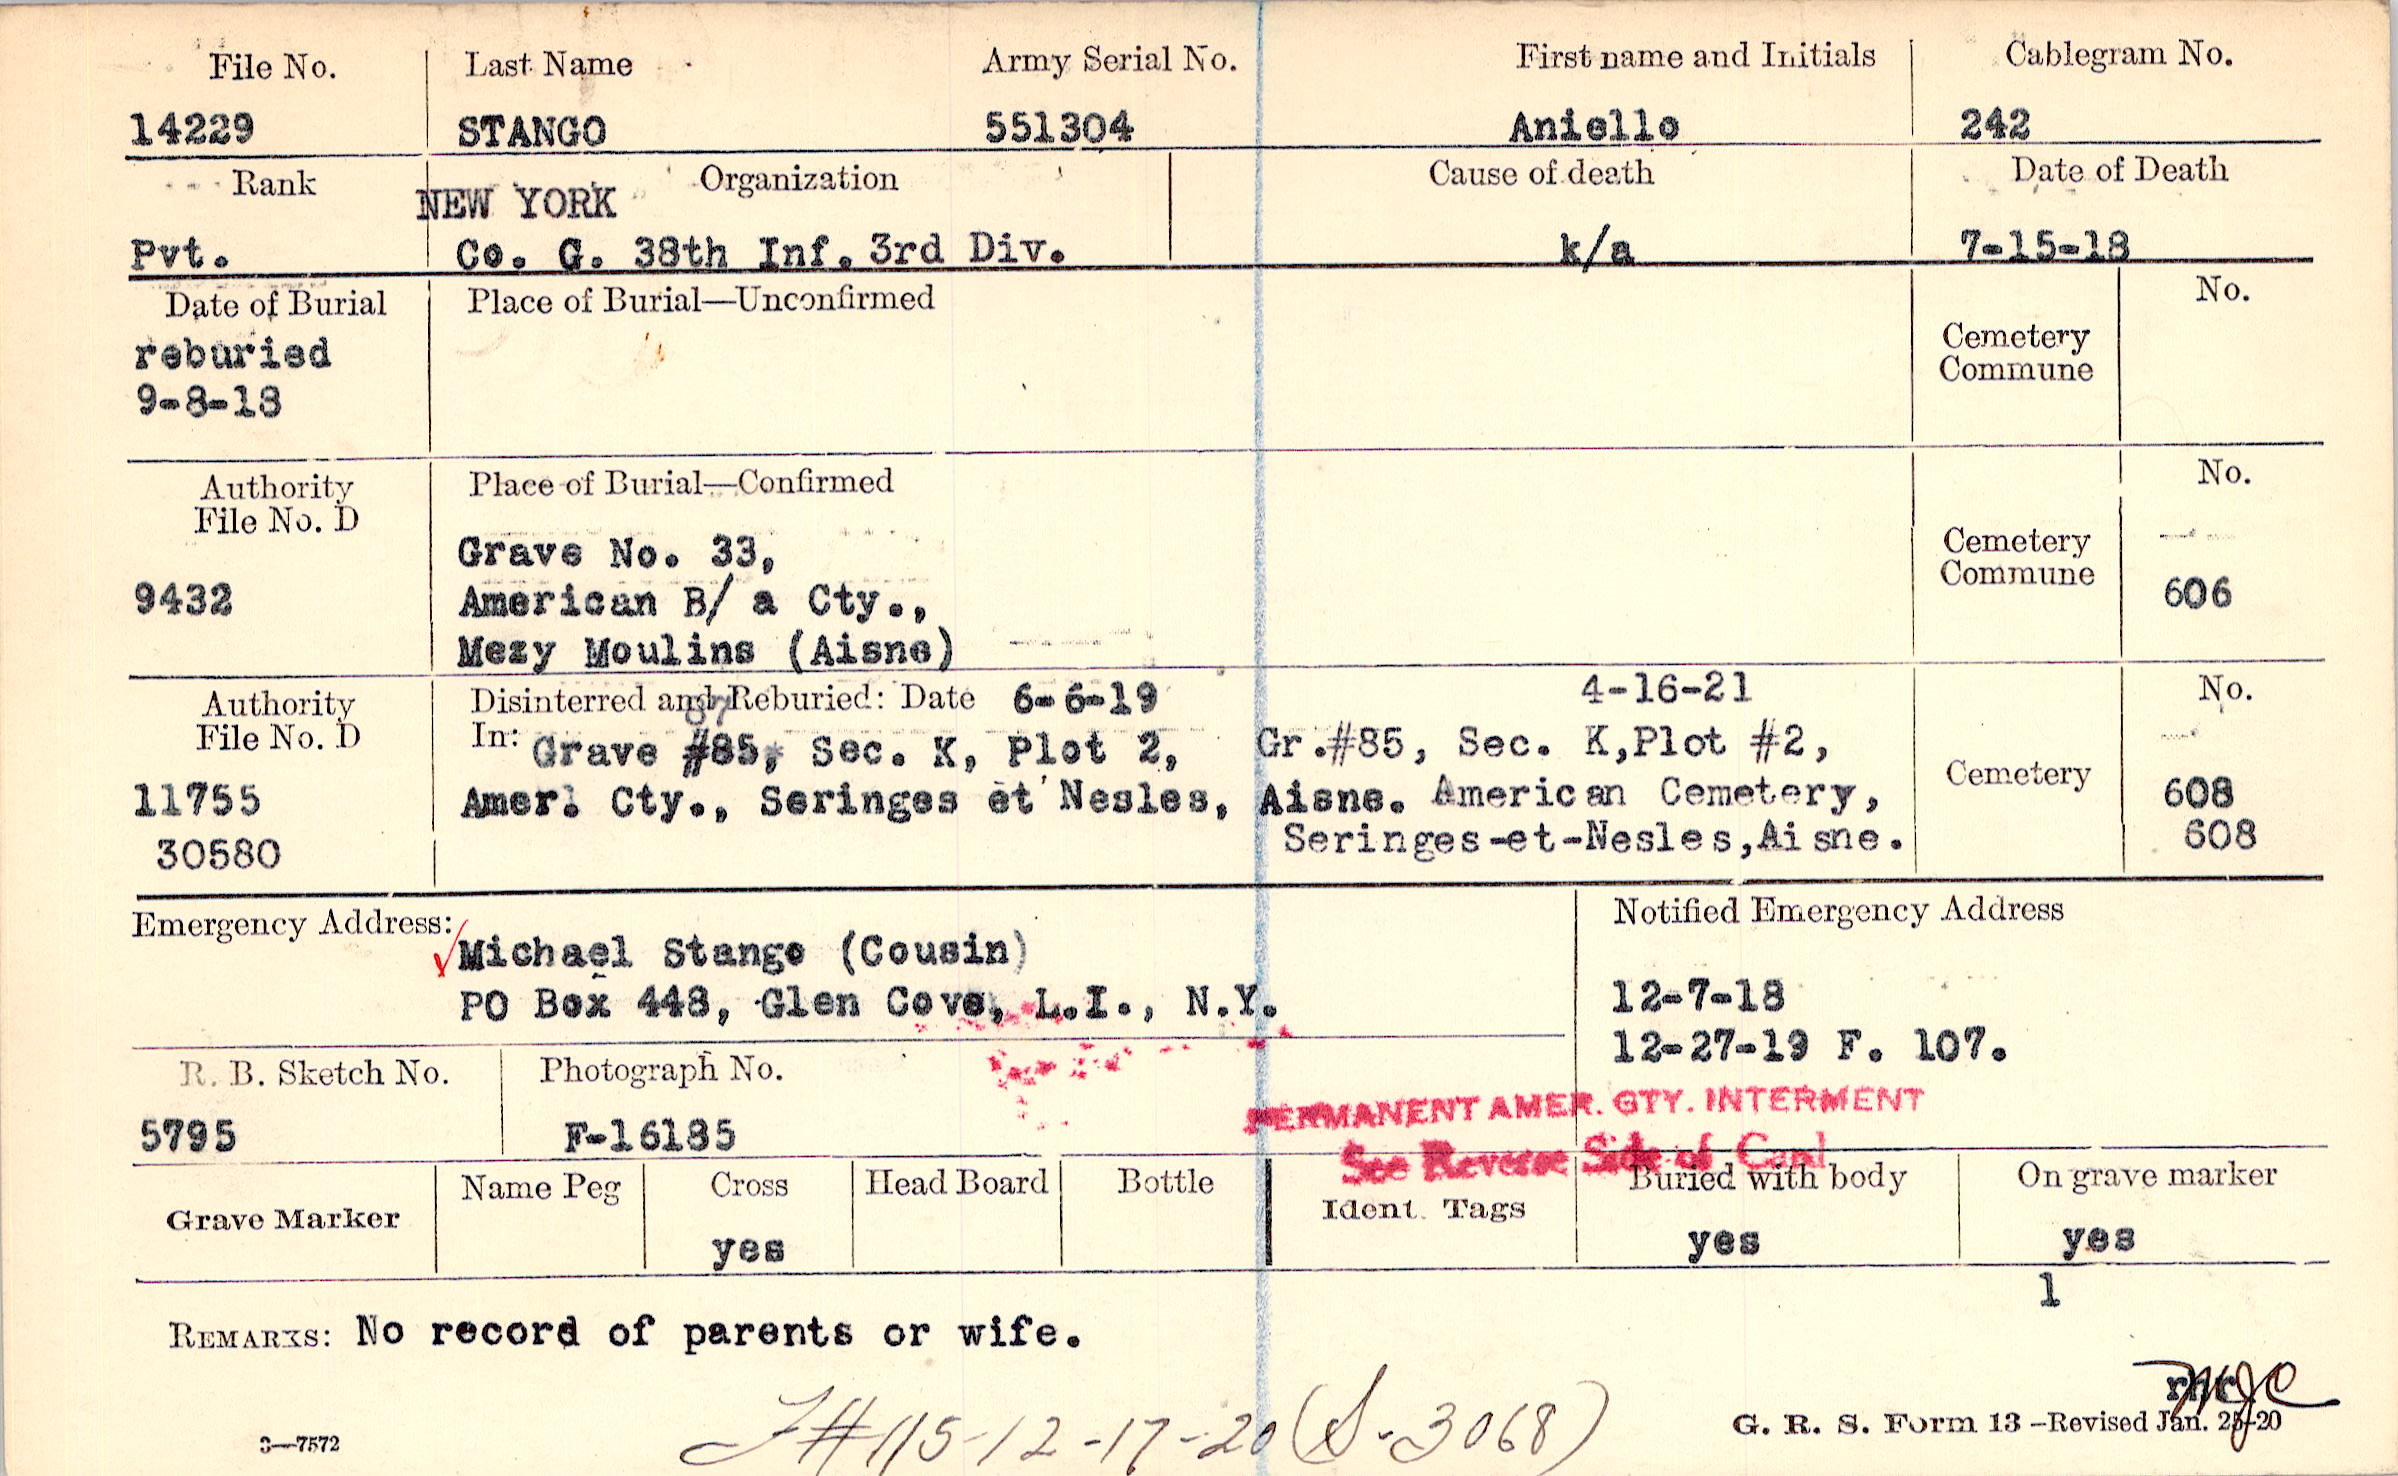 File No. Last Name Army Serial No. First name and Initials Cablegram No.
14229 STANGO 551304 Aniello 242
Rank Organization Cause of death Date of Death
NEW YORK
Pvt. Co. G. 38th Inf. 3rd Div. k/a 7-15-18
Date of Burial Place of Burial—Unconfirmed No.
reburied
9-8-18
Cemetery
Commune
Authority Place of Burial—Confirmed No.
File No. D
Grave No. 33,
9432 American B/ a Cty.,
Mezy Moulins (Aisne)
Cemetery
Commune 606
Authority Disinterred and Reburied: Date 6-6-19 4-16-21 No.
87
File No. D In: Grave #85, Sec. K, Plot 2, Gr.#85, Sec. K,Plot #2,
11755 Amer. Cty., Seringes et Nesles, Aisne. American Cemetery, Cemetery 608
30580 Seringes-et-Nesles,Aisne. 608
Emergency Address: Notified Emergency Address
Michael Stango (Cousin)
PO Box 448, Glen Cove, L.I., N.Y. 12-7-18
12-27-19 F. 107.
R. B. Sketch No. Photograph No.
5795 F-16185
PERMANENT AMER. CTY. INTERMENT
See Reverse Side of Card
Grave Marker Name Peg Cross Head Board Bottle Ident. Tags Buried with body On grave marker
yes yes yes
1
REMARKS: No record of parents or wife.
F#115-12-17-20 (S-3068)
3—7572 G. R. S. Form 13—Revised Jan. 25-20